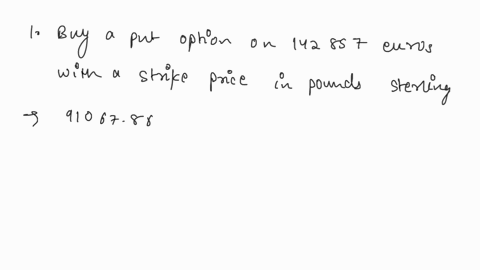 1. Buy a put option on 142 857 euros
with a strike price in pounds sterling
→ 91067.88